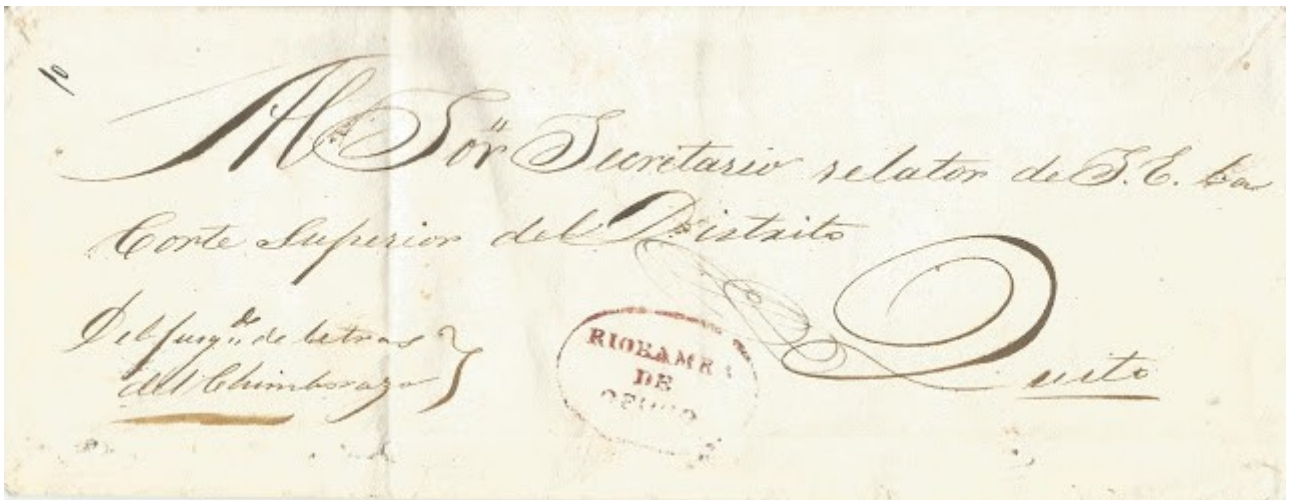 Al Sor Secretario relator de S.E. la
Corte Superior del Distrito
Quito
Del Juzgdo de letras
del Chimborazo
RIOBAMBA
DE
OFICIO